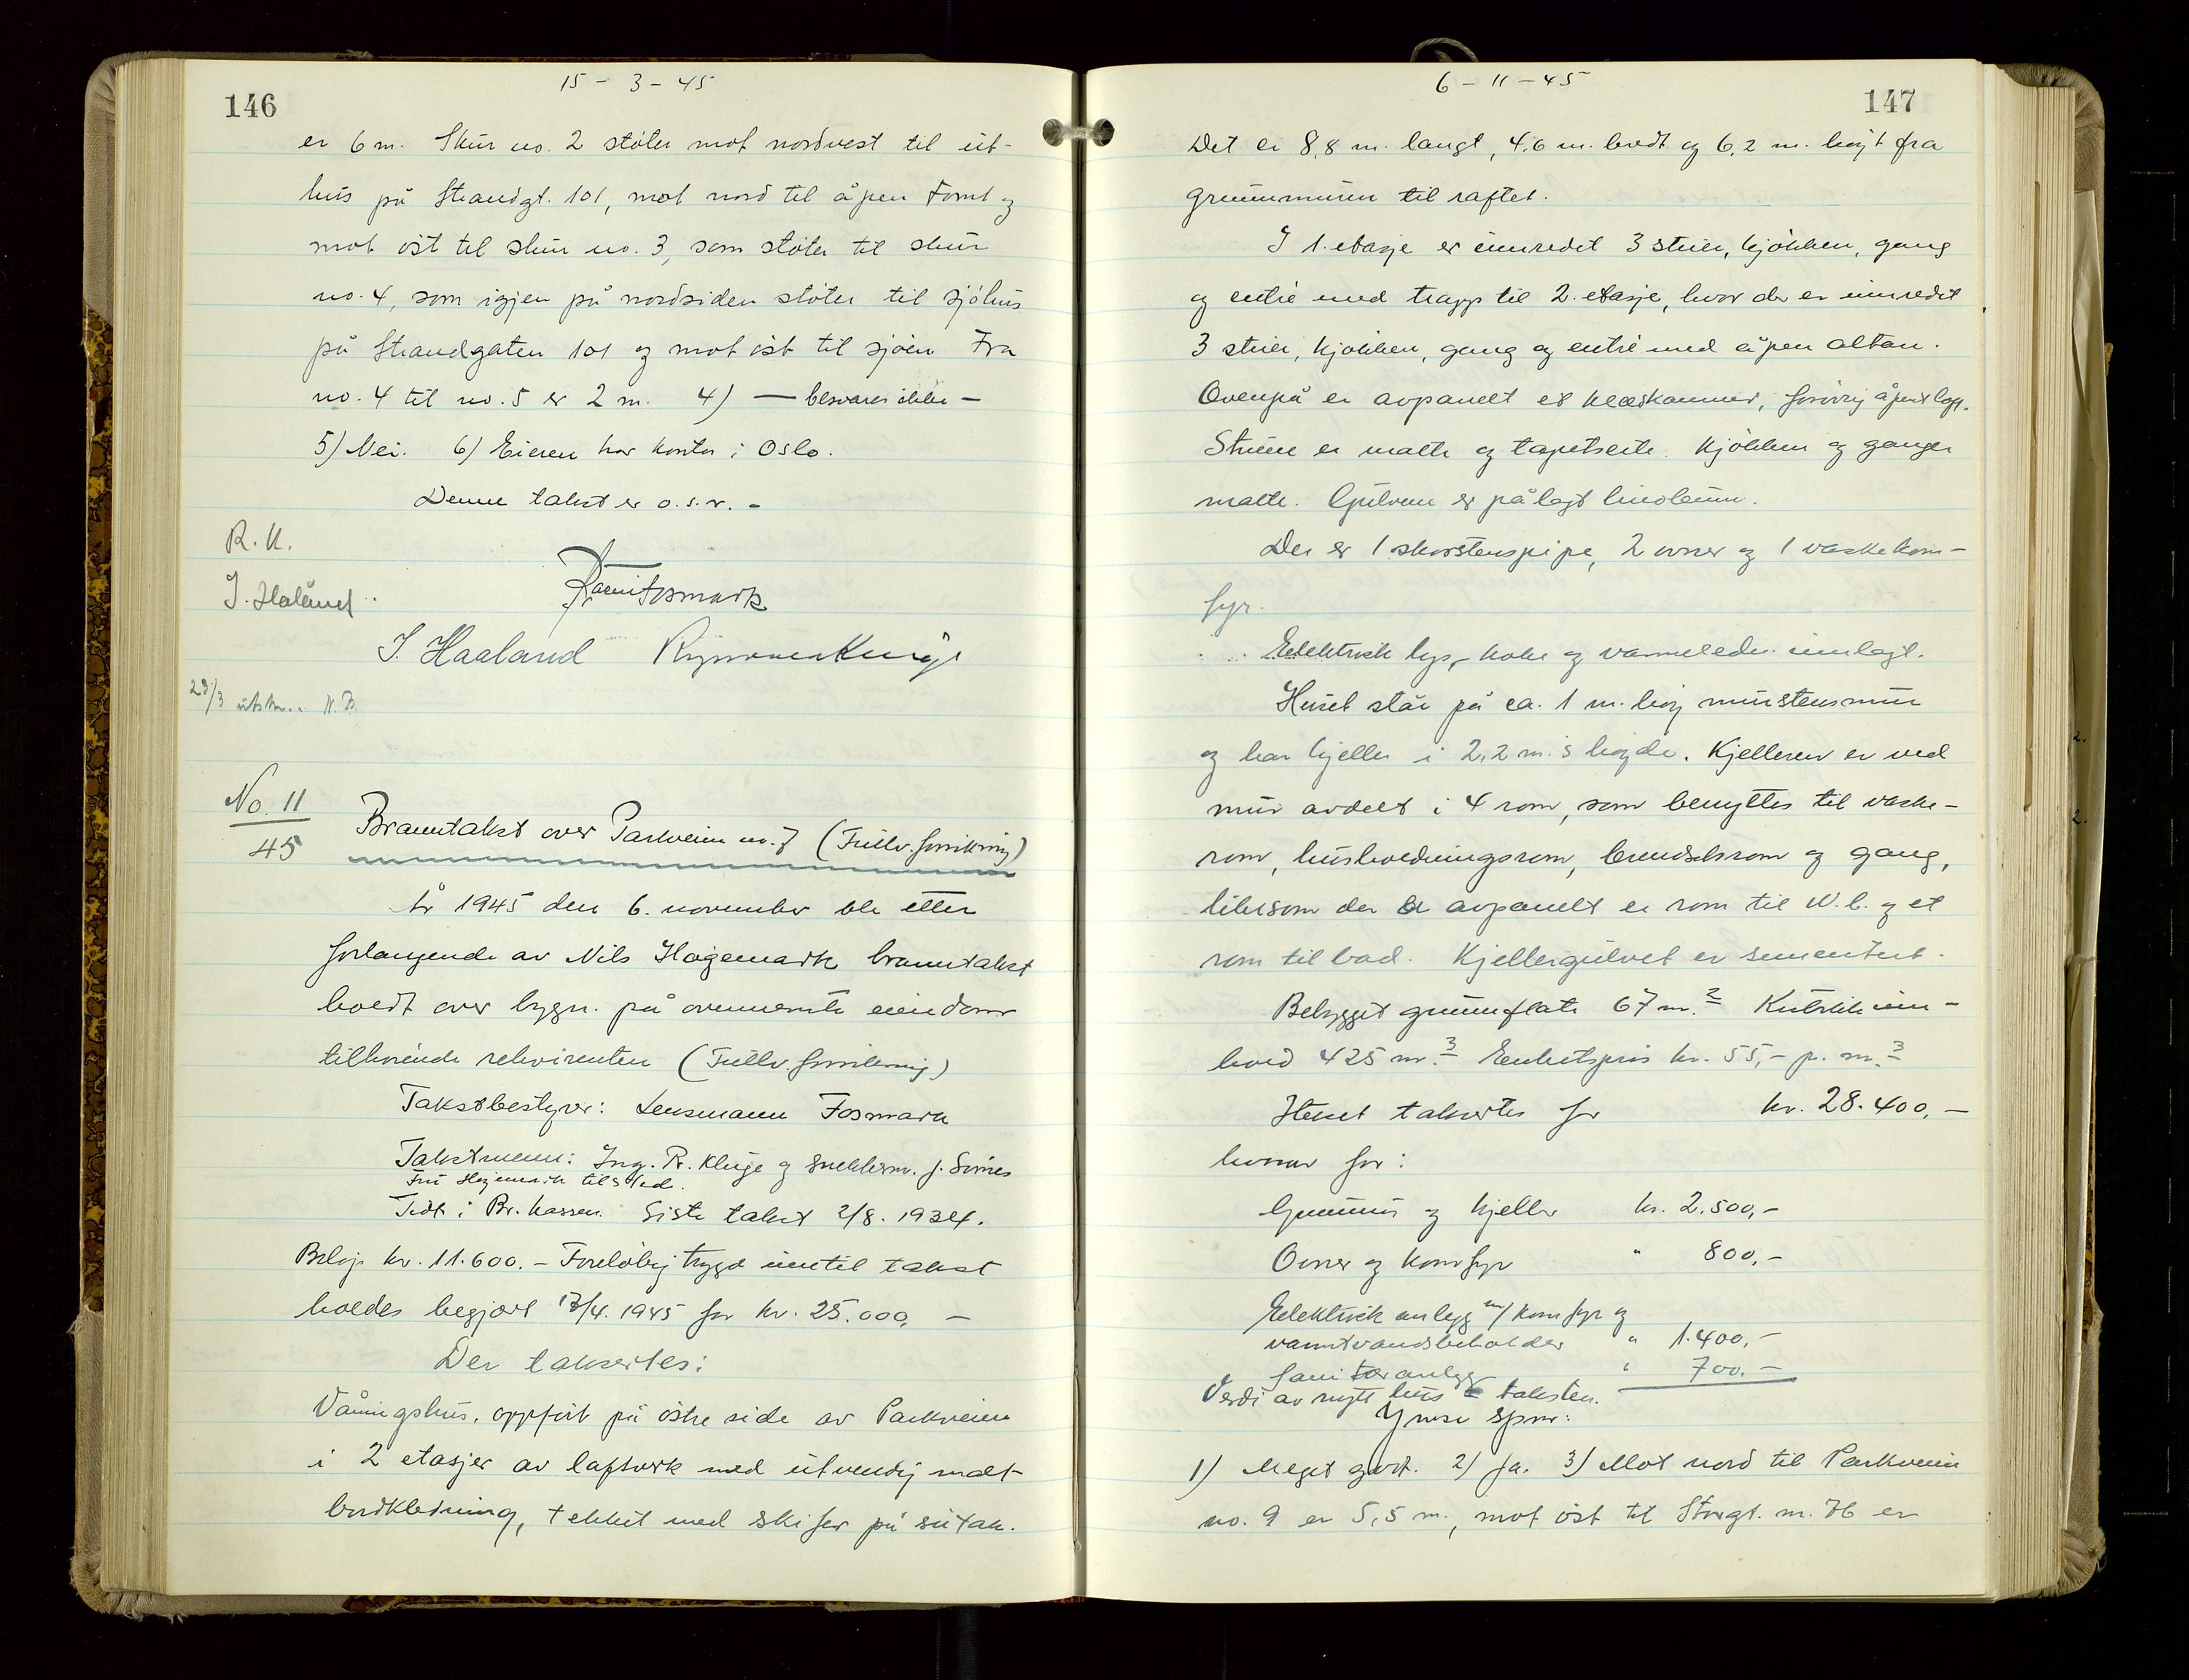 146
15 - 3 - 45
er 6 m. Skur no. 2 støter mot nordvest til ut-
hus på Strandgt. 101, mot nord til åpen tomt og
mot øst til skur no. 3, som støter til skur
no. 4, som igjen på nordsiden støter til sjøhus
på Strandgaten 101 og mot øst til sjøen Fra
no. 4 til no. 5 er 2 m. 4) — besvares ikke —
5) Nei. 6) Eieren har kontor i Oslo.
Denne takst er o.s.v. -
R. K.
J. Haland
Fosmark
J. Haaland Kluge
23/3 utskr.
No. 11
45
Branntakst over Parkveien no. 7 (Fullv. forsikring)
År 1945 den 6. november ble etter
forlangende av Nils Hagemark branntakst
holdt over bygn. på ovennevnte eiendom
tilhørende rekvirenten (Fullv. forsikring)
Takstbestyrer: Lensmann Fosmark
Takstmenn: Ing. R. Kluge og snekkerm. J.
Fru Hagemark tilsted.
Trdt i Br. kassen. Siste takst 2/8. 1934.
Beløp kr. 11.600.- Foreløbig trygd inntil takst
holdes begjært 17/4. 1945 for kr. 25.000, -
Der takseres:
Våningshus, oppført på østre side av Parkveien
i 2 etasjer av laftverk med utvendig malt
bordkledning, tekket med skifer på sutak.
6 - 11 - 45
147
Det er 8,8 m. langt, 4,6 m. bredt og 6,2 m. høyt fra
grunnmuren til raftet.
I 1. etasje er innredet 3 stuer, kjøkken, gang
og entré med trapp til 2. etasje, hvor der er innredet
3 stuer, kjøkken, gang og entré med åpen altan.
Ovenpå er avpanelt et kleskammer, forøvrig åpent loft.
Stuene er malte og tapetserte. Kjøkken og ganger
malte. Gulvene er pålagt linoleum.
Der er 1 skorstenspipe, 2 ovner og 1 vaskekom-
fyr.
Elektrisk lys-, koke og varmeledn. innlagt.
Huset står på ca. 1 m. høy murstensmur
og har kjeller i 2,2 m.'s høyde. Kjelleren er ved
mur avdelt i 4 rom, som benyttes til vaske-
rom, husholdningsrom, brendselsrom og gang,
likesom der er avpanelt et rom til W.C. og et
rom til bad. Kjellergulvet er sementert.
Bebygget grunnflate 67 m.2 Kubikkinn-
hold 425 m.3 Enhetspris kr. 55,- p. m.3
Huset takseres for kr. 28.400,-
hvorav for:
Grunnmur og kjeller kr. 2.500,-
Ovner og komfyr " 800,-
Elektrisk anlegg m/ komfyr og
varmtvandsbeholder " 1.400,-
Sanitæranlegg " 700.-
Verdi av nytt hus = taksten.
Ymse spm:
1) Meget godt. 2) Ja. 3) Mot nord til Parkveien
no. 9 er 5,5 m., mot øst til Storgt. nr. 76 er